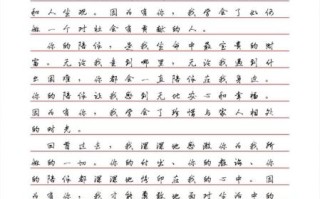 和人生观，因为有你，我学会了如何
做一个对社会有贡献的人。
你的陪伴，是我生命中最宝贵的财
富。无论我走到哪里，无论我遇到什
么困难，你都会一直陪伴在我身边。
你的陪伴让我感到无比安心和幸福。
因为有你，我学会了珍惜与家人相处
的时光。
回首过去，我深深地感激你为我所
做的一切。你的付出，你的教诲，你
的陪伴都深深地烙印在我的心中。因
为有你，我才能勇敢地面对生活中的